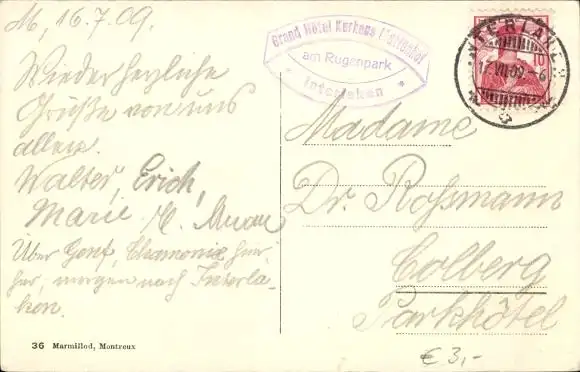 M, 16.7.09.
Wieder herzliche
Grüße von uns
allen.
Walter, Erich,
Marie
Über Genf, Chamonix hier-
her, morgen nach Interla-
ken.
36 Marmillod, Montreux
Grand Hôtel Kurhaus Mattenhof
am Rugenpark
Interlaken
INTERLAKEN
17.VII.09.-6
10
Madame
Dr. Rossmann
Colberg
Parkhôtel
€ 3,-